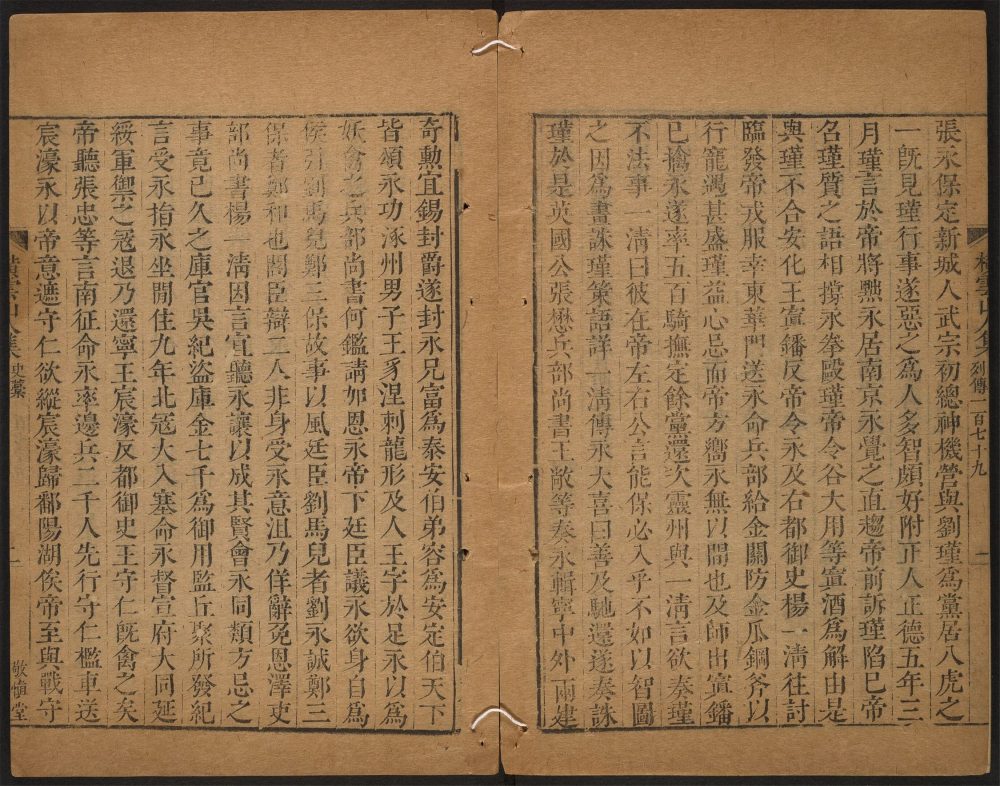 張永保定新城人武宗初總神機營與劉瑾爲黨居八虎之
一旣見瑾行事遂惡之爲人多智頗好附正人正德五年三
月瑾言於帝將黜永居南京永覺之直趨帝前訴瑾陷已帝
名瑾質之語相撐永拳毆瑾帝令谷大用等寘酒爲解由是
與瑾不合安化王寘鐇反帝令永及右都御史楊一淸往討
臨發帝戎服幸東華門送永命兵部給金關防金瓜鋼斧以
行寵遇甚盛瑾益心忌而帝方嚮永無以間也及師出寘鐇
已擒永遂率五百騎撫定餘黨還次靈州與一淸言欲奏瑾
不法事一淸曰彼在帝左右公言能保必入乎不如以智圖
之因爲書誅瑾策語詳一淸傳永大喜曰善及馳還遂奏誅
瑾於是英國公張懋兵部尚書王敞等奏永輯寧中外兩建
橫雲山人集 列傳一百七十九 一
奇勲宜錫封爵遂封永兄富爲泰安伯弟容爲安定伯天下
皆頌永功涿州男子王豸涅刺龍形及人王字於足永以爲
妖禽之兵部尚書何鑑請加恩永帝下廷臣議永欲身自爲
侯引劉馬兒鄭三保故事以風廷臣劉馬兒者劉永誠鄭三
保者鄭和也閣臣辯二人非身受永意沮乃佯辭免恩澤吏
部尚書楊一淸因言宜聽永讓以成其賢會永同類方忌之
事竟已久之庫官吳紀盜庫金七千爲御用監丘聚所發紀
言受永指永坐閒住九年北寇大入塞命永督宣府大同延
綏軍禦之寇退乃還寧王宸濠反都御史王守仁旣禽之矣
帝聽張忠等言南征命永率邊兵二千人先行守仁檻車送
宸濠永以帝意遮守仁欲縱宸濠歸鄱陽湖俟帝至與戰守
橫雲山人集 史藁 一 敬愼堂